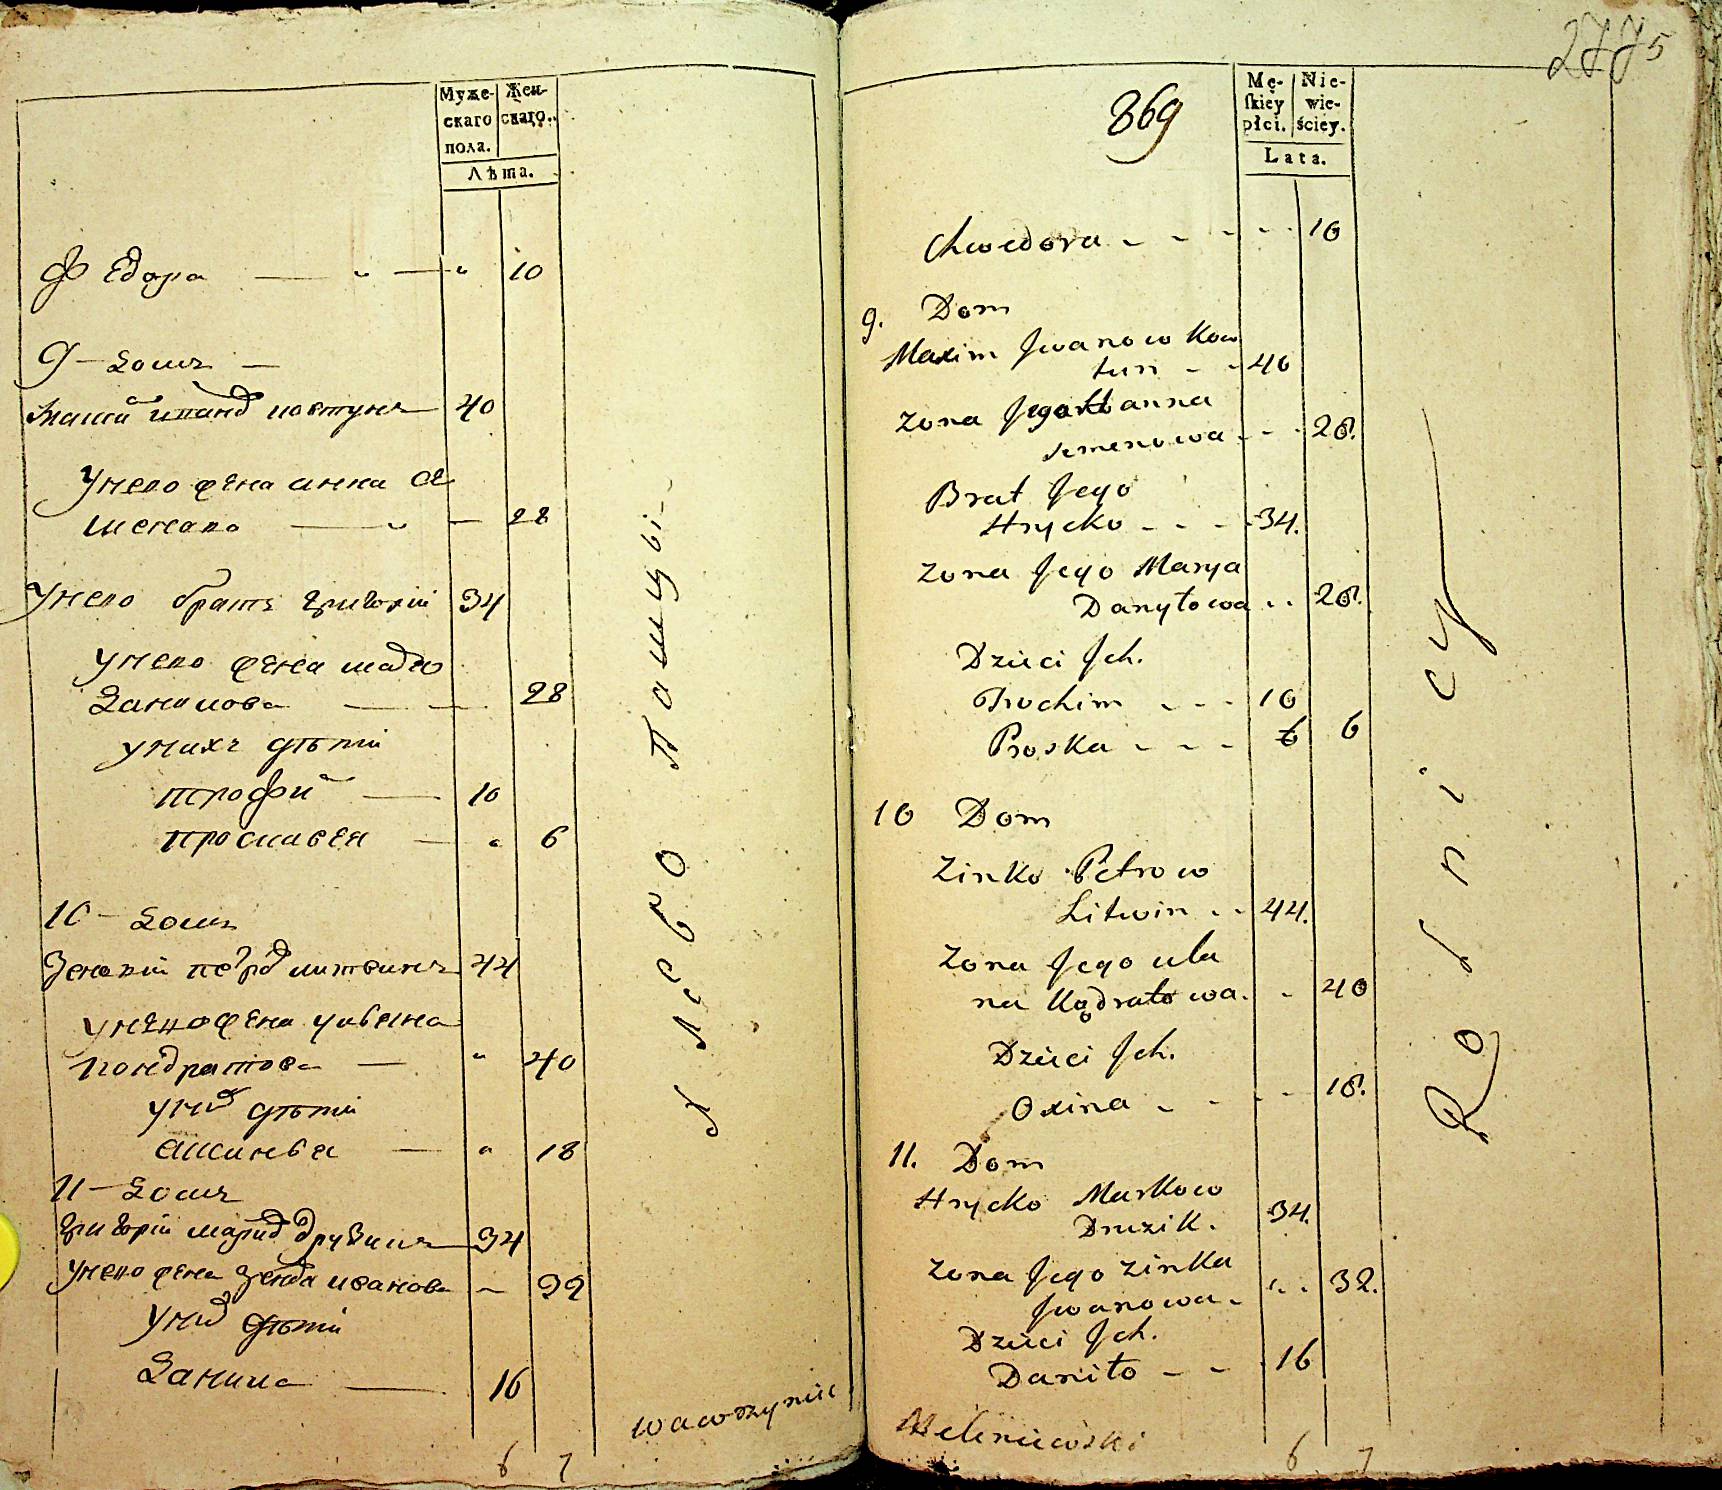 Муже-
скаго
пола.
Жен-
скаго.
Лѣта.
Федора — " — " 10
9 — домъ —
Иванъ Ковтунъ — 40
У него жена анна Се
менова — " — 28
У него братъ григорій 34
У него жена
данилова — — 28
У нихъ дѣтій
трофи — 10
просковея — " 6
10 — домъ
литвинъ 44
У него жена улвяна
кондратова — " 40
дѣтій
аксинвя — " 18
11 — домъ
григорій 34
У него жена иванова — 32
дѣтій
Данила — 16
6 7
Wawrzyniec
2775
869
Mę-
ſkiey
płci.
Nie-
wie-
ściey.
Lata.
Chwedora - - - - - 10
9. Dom
Maxim Jwanow Kow
tun - - 40
Zona Jego anna
semenowa - - - 28.
Brat Jego
Hrycko - - - - 34.
Zona Jego Marya
Danyłowa - - 28.
Dzieci Jch.
Trochim - - - 10
Proska - - - 6 6
10 Dom
Zinko Petrow
Litwin - - 44.
Zona Jego ula
na Kądratowa. - 40
Dzieci Jch.
Oxina - - - - 18.
11. Dom
Hrycko Markow
Druzik. 34.
Zona Jego Zinka
Jwanowa - - - 32.
Dzieci Jch.
Daniło - - - 16
Rolnicy
6 7